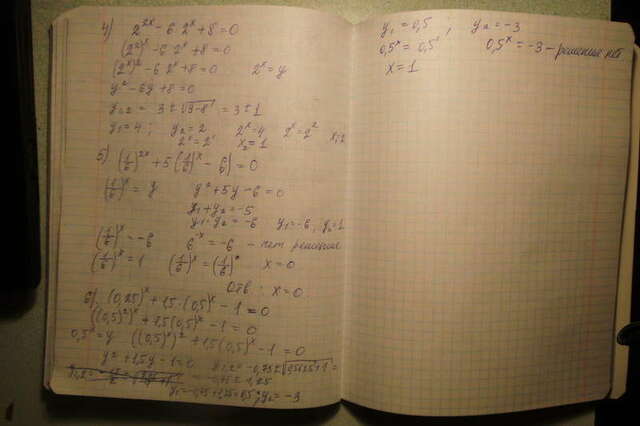 4) 2^{2x} - 6 2^x + 8 = 0
(2²)^x - 6 2^x + 8 = 0
(2^x)² - 6 2^x + 8 = 0   2^x = y
y² - 6y + 8 = 0
y₁,₂ = 3 ± √9-8 = 3 ± 1
y₁ = 4 ; y₂ = 2   2^x = 4   2^x = 2²   x₁ = 2
2^x = 2¹   x₂ = 1
5) (1/6)^{2x} + 5(1/6)^x - 6 = 0
(1/6)^x = y   y² + 5y - 6 = 0
y₁ + y₂ = -5
y₁ · y₂ = -6   y₁ = -6, y₂ = 1
(1/6)^x = -6   6^{-x} = -6 - нет решения
(1/6)^x = 1   (1/6)^x = (1/6)^0   x = 0
Отв: x = 0
6) (0,25)^x + 1,5·(0,5)^x - 1 = 0
((0,5)²)^x + 1,5(0,5)^x - 1 = 0
0,5^x = y   ((0,5)^x)² + 1,5(0,5)^x - 1 = 0
y² + 1,5y - 1 = 0   y₁,₂ = -0,75 ±
= -0,75 ± 1,25
y₁ = -0,75 + 1,25 = 0,5 ; y₂ = -3
y₁ = 0,5 , y₂ = -3
0,5^x = 0,5¹   0,5^x = -3 - решения нет
x = 1